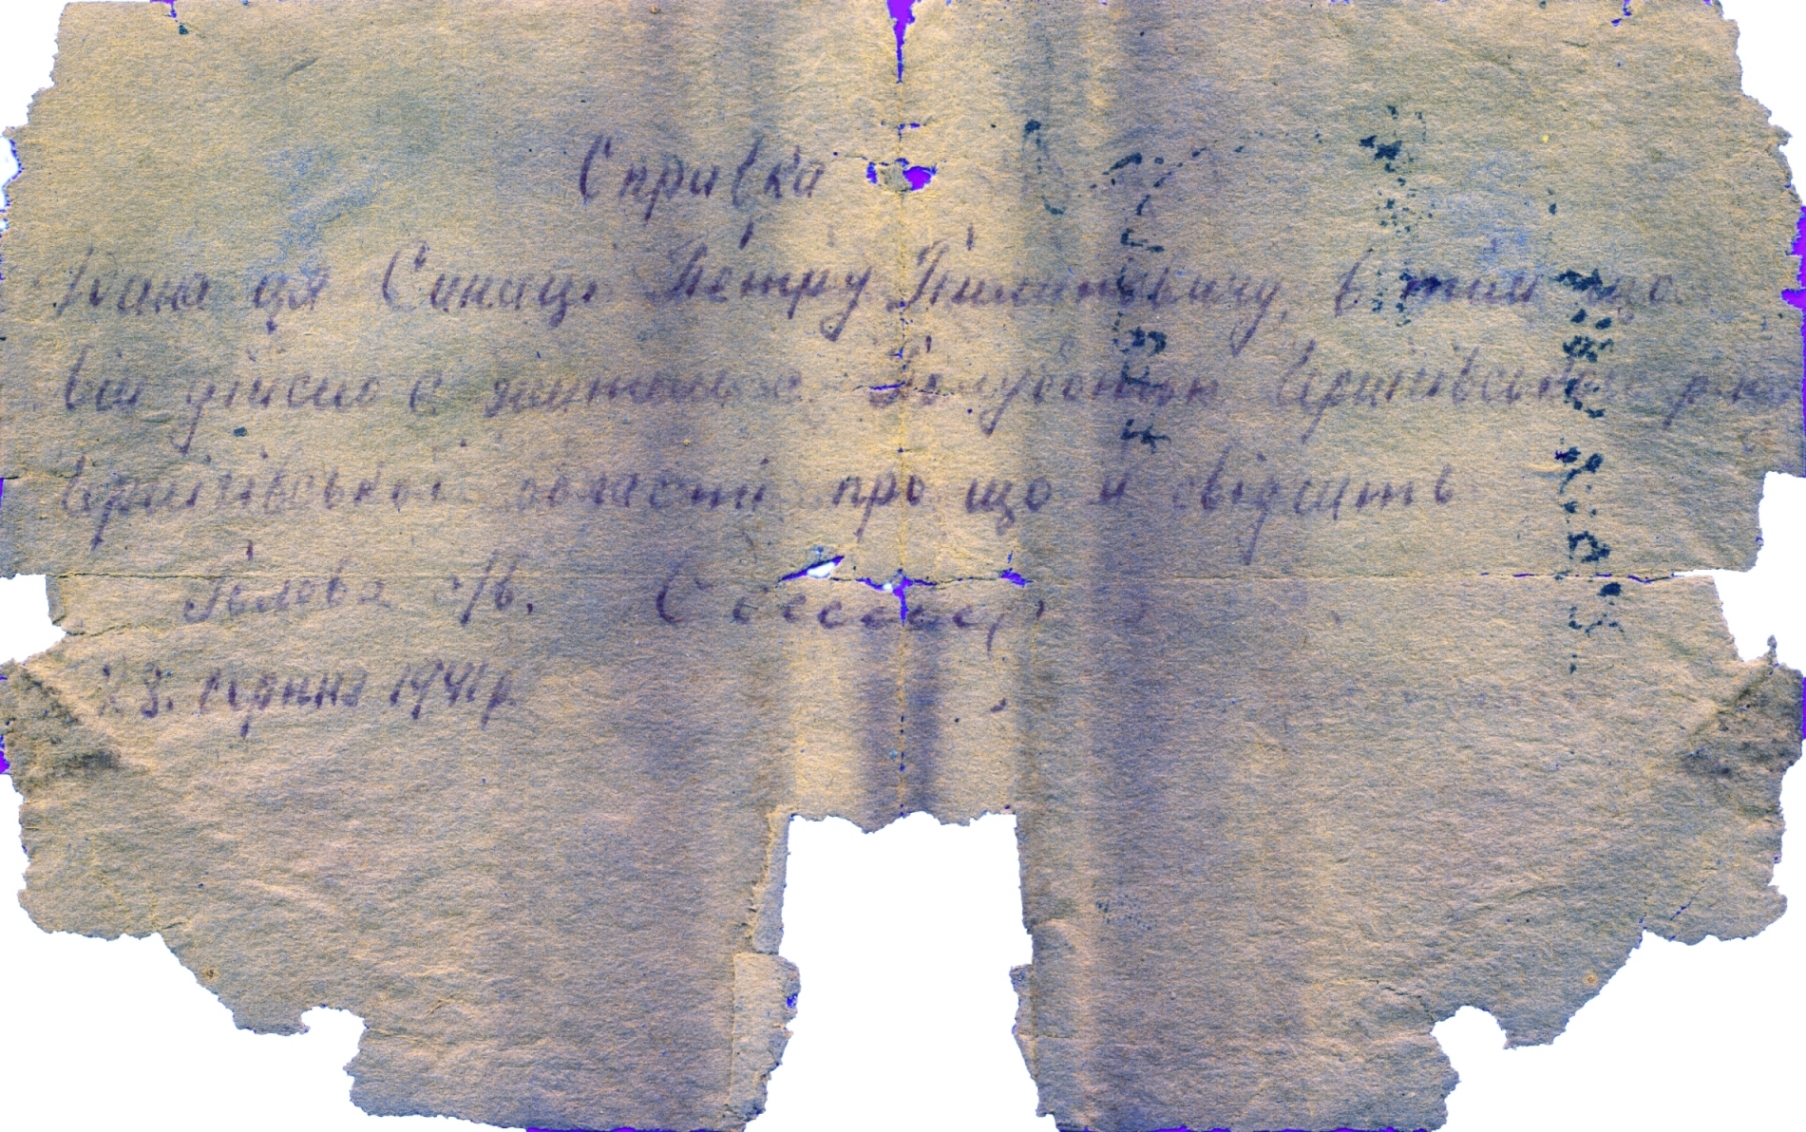 Справка
Дана ця Синиці Петру Пилиповичу, в тім що
він дійсно є жителем с. Чернігівської р-ну
Чернігівської області про що й свідчить
Голова с/в.
23. серпня 1941 р.